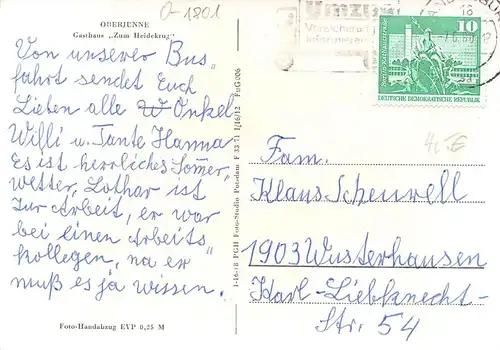 O-1801
OBERJÜNNE
Gasthaus „Zum Heidekrug"
Von unserer Bus„
fahrt sendet Euch
Lieben alle Onkel
Willi u. Tante Hanna
Es ist herrliches Somer„
wetter, Lothar ist
zur Arbeit, er war
bei einen Arbeits„
kollegen, na er
muß es ja wissen.
Foto-Handabzug EVP 0,25 M
I-16-18 PGH Foto-Studio Potsdam F 33/71 1/16/12 FuG 006
Umzug
Versicherung
18
10
DEUTSCHE DEMOKRATISCHE REPUBLIK
Fam.
Klaus Scheuvell
1903 Wusterhausen
Karl-Liebknecht-
Str. 54